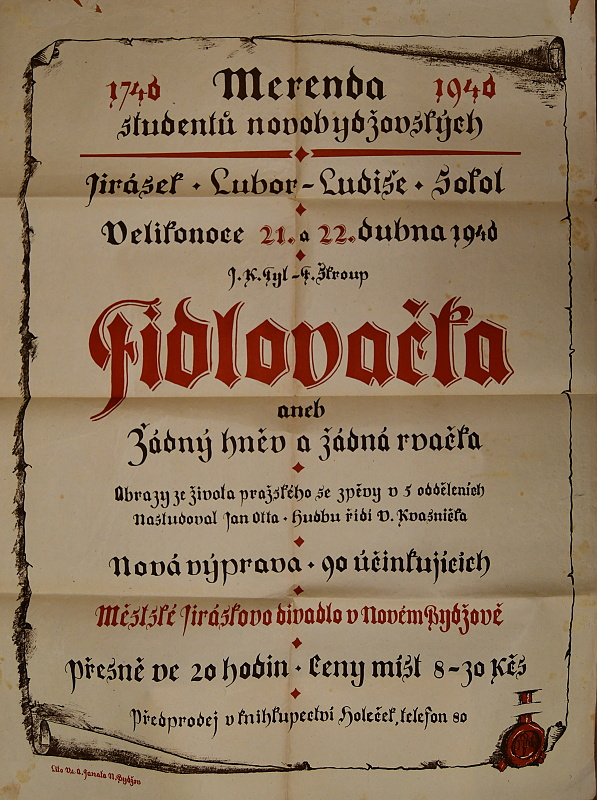 1746 Merenda 1946
studentů novobydžovských
Jirásek · Lubor-Ludiše · Sokol
Velikonoce 21. a 22. dubna 1946
J. K. Tyl - F. Škroup
Fidlovačka
aneb
Žádný hněv a žádná rvačka
Obrazy ze života pražského se zpěvy v 5 odděleních
Nastudoval Jan Otta · Hudbu řídí V. Kvasnička
Nová výprava · 90 účinkujících
Městské Jiráskovo divadlo v Novém Bydžově
Přesně ve 20 hodin · Ceny míst 8-30 Kčs
Předprodej v knihkupectví Holeček, telefon 80
Lito A. Janata N. Bydžov